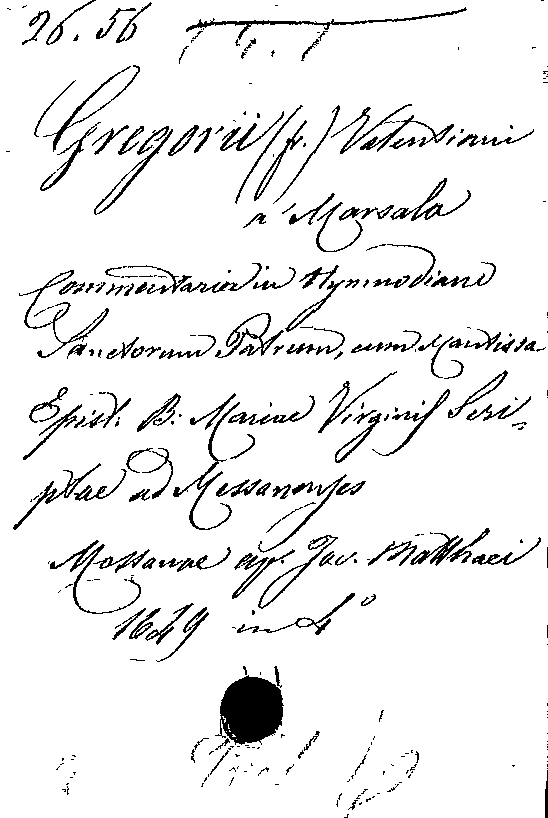 26. 56
Gregorii (fr.) Valentiani
a Marsala
Commentarior in Hymnodiam
Sanctorum Patrum, cum Mantissa
Epist. B: Mariae Virginis Scri-
ptae ad Messanenses
Messanae ap. Jac. Matthaei
1649 in 4°